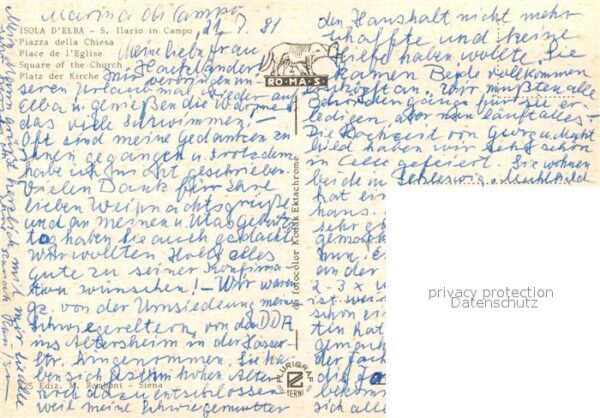 Marina di Campo
21.7.81
ISOLA D'ELBA - S. Ilario in Campo
Piazza della Chiesa
Place de l'Eglise
Square of the Church
Platz der Kirche
RO·MA·S.
Meine liebe Frau
Haslander
wir verbringen un-
seren Urlaub mal wieder auf
Elba u. genießen die Wärme u.
das viele Schwimmen! –
Oft sind meine Gedanken zu
Ihnen gegangen u. trotzdem
habe ich nie geschrieben.
Vielen Dank für Ihre
lieben Weihnachtsgrüße
und an meinen u. Utas Geburts-
tag haben Sie auch gedacht.
Wir wollten alles
Gute zu seiner Konfirma-
tion wünschen! – Wir waren
von der Umsiedlung meiner
Schwiegereltern, von der DDR
ins Altersheim in der Kasseler-
str. hingenommen. Sie ha-
ben sich trotz im hohen Alter
noch dazu entschlossen
weil meine Schwiegermutter
den Haushalt nicht mehr
schaffte und keine
Hilfe haben wollte. Sie
kamen Beide vollkommen
erschöpft an. Wir mußten alle
Behördengänge für sie er-
ledigen, aber nun läuft alles –
Die Hochzeit von Georg u. Mecht-
hild haben wir sehr schön
in Celle gefeiert. Sie wohnen
beide in Schleswig u. Mechthild
hat ein
haus.
sehr
gemach
nun,
an der
2-3 x
ist
schon
tin hat
gemach
der Fach
die
bekom
sich
dia fotocolor Kodak Ektachrome
PLURIGRAF
TERNI
25 Ediz. M. Romboni - Siena
privacy protection
Datenschutz